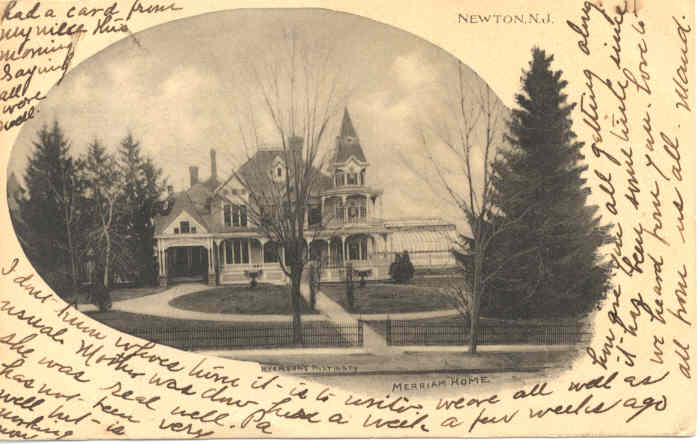 NEWTON, N.J.
had a card from
my niece this
morning
Saying
all
were
well.
How are you all getting along.
it has been some time since
we heard from you. Love to
all from us all. Maud.
RYERSON'S PHARMACY
MERRIAM HOME
I don't know whose turn it is to write. we are all well as
usual Mother was down here a week a few weeks ago
she was real well. Pa
has not been very
well but is
working
now